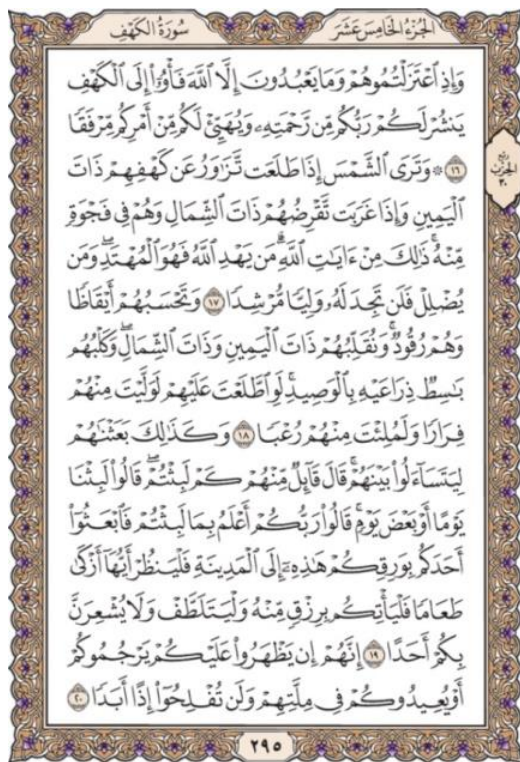 الجزء الخامس عشر
سورة الكهف
وَإِذِ ٱعْتَزَلْتُمُوهُمْ وَمَا يَعْبُدُونَ إِلَّا ٱللَّهَ فَأْوُۥٓاْ إِلَى ٱلْكَهْفِ
يَنشُرْ لَكُمْ رَبُّكُم مِّن رَّحْمَتِهِۦ وَيُهَيِّئْ لَكُم مِّنْ أَمْرِكُم مِّرْفَقًا
١٦ ۞ وَتَرَى ٱلشَّمْسَ إِذَا طَلَعَت تَّزَٰوَرُ عَن كَهْفِهِمْ ذَاتَ
ٱلْيَمِينِ وَإِذَا غَرَبَت تَّقْرِضُهُمْ ذَاتَ ٱلشِّمَالِ وَهُمْ فِى فَجْوَةٍ
مِّنْهُ ۚ ذَٰلِكَ مِنْ ءَايَٰتِ ٱللَّهِ ۗ مَن يَهْدِ ٱللَّهُ فَهُوَ ٱلْمُهْتَدِ ۖ وَمَن
يُضْلِلْ فَلَن تَجِدَ لَهُۥ وَلِيًّا مُّرْشِدًا ١٧ وَتَحْسَبُهُمْ أَيْقَاظًا
وَهُمْ رُقُودٌ ۚ وَنُقَلِّبُهُمْ ذَاتَ ٱلْيَمِينِ وَذَاتَ ٱلشِّمَالِ ۖ وَكَلْبُهُم
بَٰسِطٌ ذِرَاعَيْهِ بِٱلْوَصِيدِ ۚ لَوِ ٱطَّلَعْتَ عَلَيْهِمْ لَوَلَّيْتَ مِنْهُمْ
فِرَارًا وَلَمُلِئْتَ مِنْهُمْ رُعْبًا ١٨ وَكَذَٰلِكَ بَعَثْنَٰهُمْ
لِيَتَسَآءَلُواْ بَيْنَهُمْ ۚ قَالَ قَآئِلٌ مِّنْهُمْ كَمْ لَبِثْتُمْ ۖ قَالُواْ لَبِثْنَا
يَوْمًا أَوْ بَعْضَ يَوْمٍ ۚ قَالُواْ رَبُّكُمْ أَعْلَمُ بِمَا لَبِثْتُمْ فَٱبْعَثُوٓاْ
أَحَدَكُم بِوَرِقِكُمْ هَٰذِهِۦٓ إِلَى ٱلْمَدِينَةِ فَلْيَنظُرْ أَيُّهَآ أَزْكَىٰ
طَعَامًا فَلْيَأْتِكُم بِرِزْقٍ مِّنْهُ وَلْيَتَلَطَّفْ وَلَا يُشْعِرَنَّ
بِكُمْ أَحَدًا ١٩ إِنَّهُمْ إِن يَظْهَرُواْ عَلَيْكُمْ يَرْجُمُوكُمْ
أَوْ يُعِيدُوكُمْ فِى مِلَّتِهِمْ وَلَن تُفْلِحُوٓاْ إِذًا أَبَدًا ٢٠
ربع
الحزب
٣٠
٢٩٥